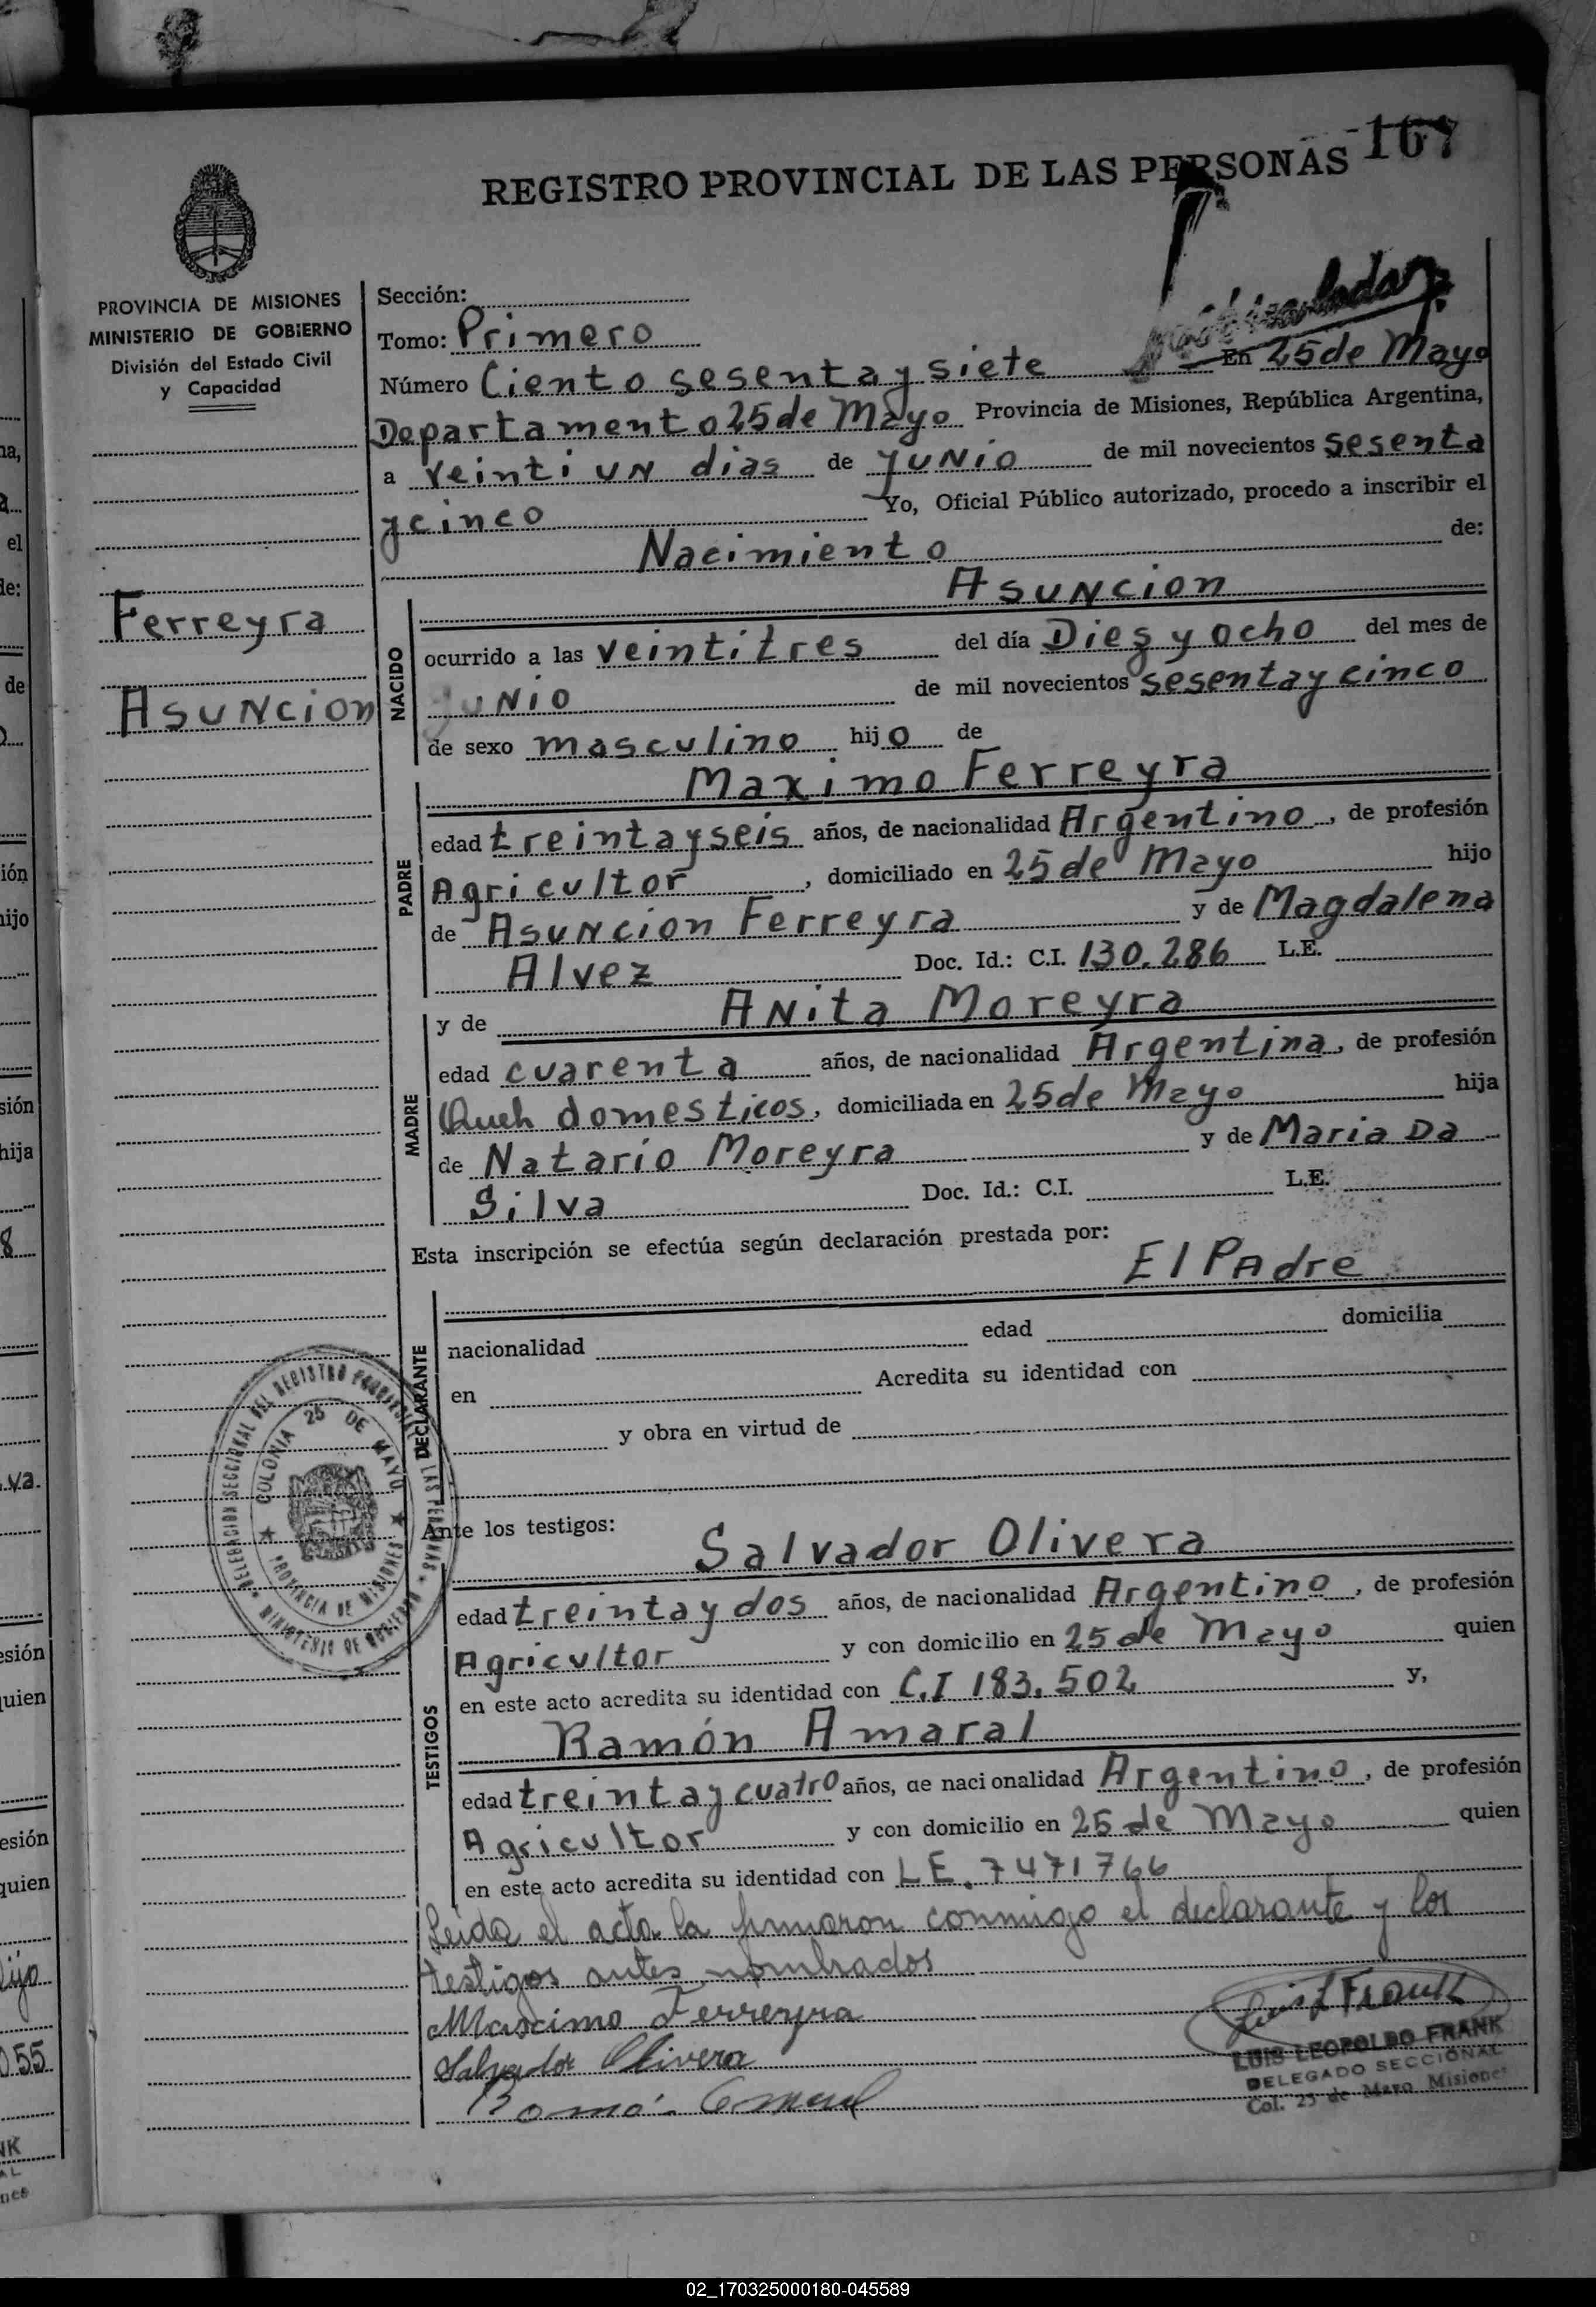 REGISTRO PROVINCIAL DE LAS PERSONAS 167
PROVINCIA DE MISIONES
MINISTERIO DE GOBIERNO
División del Estado Civil
y Capacidad
Ferreyra
Asuncion
Sección:
Tomo: Primero
Número Ciento sesenta y siete En 25 de Mayo
Departamento 25 de Mayo Provincia de Misiones, República Argentina,
a veinti un dias de junio de mil novecientos sesenta
y cinco Yo, Oficial Público autorizado, procedo a inscribir el
Nacimiento de:
NACIDO
Asuncion
ocurrido a las veintitres del día Diez y ocho del mes de
junio de mil novecientos sesenta y cinco
de sexo masculino hijo de
PADRE
Maximo Ferreyra
edad treinta y seis años, de nacionalidad Argentino, de profesión
Agricultor, domiciliado en 25 de Mayo hijo
de Asuncion Ferreyra y de Magdalena
Alvez Doc. Id.: C.I. 130.286 L.E.
MADRE
y de Anita Moreyra
edad cuarenta años, de nacionalidad Argentina, de profesión
Queh domesticos, domiciliada en 25 de Mayo hija
de Natario Moreyra y de Maria Da
Silva Doc. Id.: C.I. L.E.
Esta inscripción se efectúa según declaración prestada por:
El Padre
DECLARANTE
nacionalidad edad domicilia
en Acredita su identidad con
y obra en virtud de
DELEGACION SECCIONAL DEL REGISTRO PROVINCIAL DE LAS PERSONAS
MINISTERIO DE GOBIERNO
COLONIA 25 DE MAYO
PROVINCIA DE MISIONES
Ante los testigos:
TESTIGOS
Salvador Olivera
edad treinta y dos años, de nacionalidad Argentino, de profesión
Agricultor y con domicilio en 25 de Mayo quien
en este acto acredita su identidad con C.I 183.502 y,
Ramón Amaral
edad treinta y cuatro años, de nacionalidad Argentino, de profesión
Agricultor y con domicilio en 25 de Mayo quien
en este acto acredita su identidad con L E. 7471766
Leida el acta la firmaron conmigo el declarante y los
testigos antes nombrados
Maximo Ferreyra
Salvador Olivera
Luis L Frank
LUIS LEOPOLDO FRANK
DELEGADO SECCIONAL
Col. 25 de Mayo Misiones
02_170325000180-045589